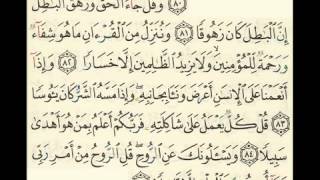 ٨٠ وَقُلْ جَآءَ ٱلْحَقُّ وَزَهَقَ ٱلْبَٰطِلُ
إِنَّ ٱلْبَٰطِلَ كَانَ زَهُوقًا ٨١ وَنُنَزِّلُ مِنَ ٱلْقُرْءَانِ مَا هُوَ شِفَآءٌ
وَرَحْمَةٌ لِّلْمُؤْمِنِينَ وَلَا يَزِيدُ ٱلظَّٰلِمِينَ إِلَّا خَسَارًا ٨٢ وَإِذَآ
أَنْعَمْنَا عَلَى ٱلْإِنسَٰنِ أَعْرَضَ وَنَـَٔا بِجَانِبِهِۦ وَإِذَا مَسَّهُ ٱلشَّرُّ كَانَ يَـُٔوسًا
٨٣ قُلْ كُلٌّ يَعْمَلُ عَلَىٰ شَاكِلَتِهِۦ فَرَبُّكُمْ أَعْلَمُ بِمَنْ هُوَ أَهْدَىٰ
سَبِيلًا ٨٤ وَيَسْـَٔلُونَكَ عَنِ ٱلرُّوحِ قُلِ ٱلرُّوحُ مِنْ أَمْرِ رَبِّى